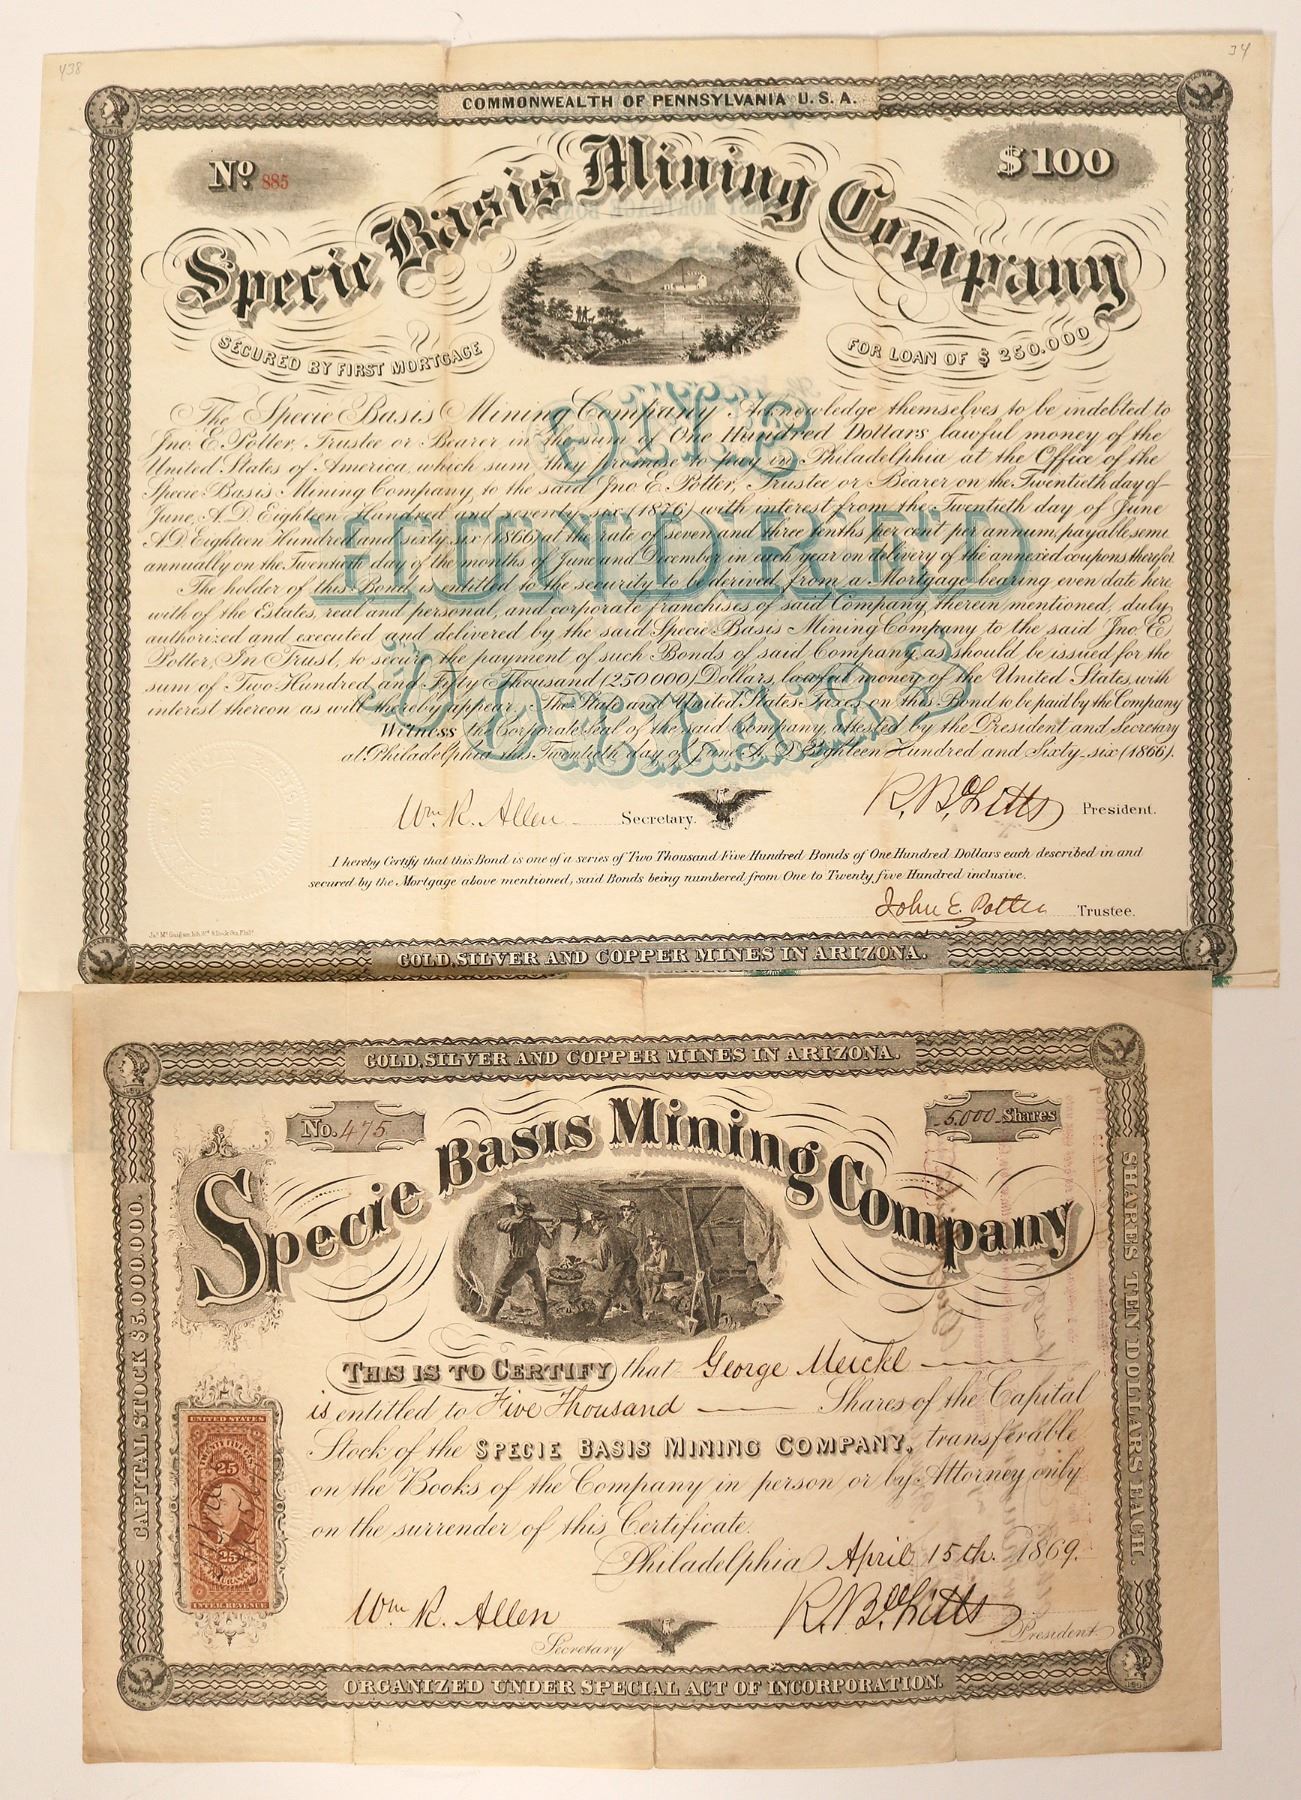 438
34
COMMONWEALTH OF PENNSYLVANIA U.S.A.
No. 885
$100
Specie Basis Mining Company
SECURED BY FIRST MORTGAGE
FOR LOAN OF $ 250.000
The Specie Basis Mining Company Acknowledge themselves to be indebted to
Jno. E. Potter, Trustee or Bearer in the sum of One Hundred Dollars lawful money of the
United States of America, which sum they promise to pay in Philadelphia at the Office of the
Specie Basis Mining Company, to the said Jno. E. Potter, Trustee or Bearer on the Twentieth day of
June, A.D. Eighteen Hundred and seventy-six (1876) with interest from the Twentieth day of June
A.D. Eighteen Hundred and sixty six (1866) at the rate of seven and three tenths per cent per annum, payable semi
annually on the Twentieth day of the months of June and December in each year on delivery of the annexed coupons therefor
The holder of this Bond is entitled to the security to be derived from a Mortgage bearing even date here
with of the Estates, real and personal, and corporate franchises of said Company therein mentioned, duly
authorized and executed and delivered by the said Specie Basis Mining Company to the said Jno E.
Potter, In Trust, to secure the payment of such Bonds of said Company as should be issued for the
sum of Two Hundred and Fifty Thousand (250 000) Dollars, lawful money of the United States, with
interest thereon as will thereby appear. The State and United States Taxes on this Bond to be paid by the Company
Witness the Corporate Seal of the said Company, attested by the President and Secretary
at Philadelphia this Twentieth day of June A.D. Eighteen Hundred and Sixty-six (1866).
ONE
HUNDRED
DOLLARS
Wm. R. Allen Secretary.
President.
I hereby Certify that this Bond is one of a series of Two Thousand Five Hundred Bonds of One Hundred Dollars each described in and
secured by the Mortgage above mentioned, said Bonds being numbered from One to Twenty five Hundred inclusive.
John E. Potter Trustee.
GOLD, SILVER AND COPPER MINES IN ARIZONA.
GOLD, SILVER AND COPPER MINES IN ARIZONA.
No. 475
5.000 Shares
Specie Basis Mining Company
CAPITAL STOCK $5.000.000.
SHARES TEN DOLLARS EACH.
THIS IS TO CERTIFY that George Meickl
is entitled to Five Thousand Shares of the Capital
Stock of the SPECIE BASIS MINING COMPANY, transferable
on the Books of the Company in person or by Attorney only
on the surrender of this Certificate.
Philadelphia April 15th. 1869.
UNITED STATES
25
25
INTER. REVENUE
Wm R. Allen
Secretary
President
ORGANIZED UNDER SPECIAL ACT OF INCORPORATION.